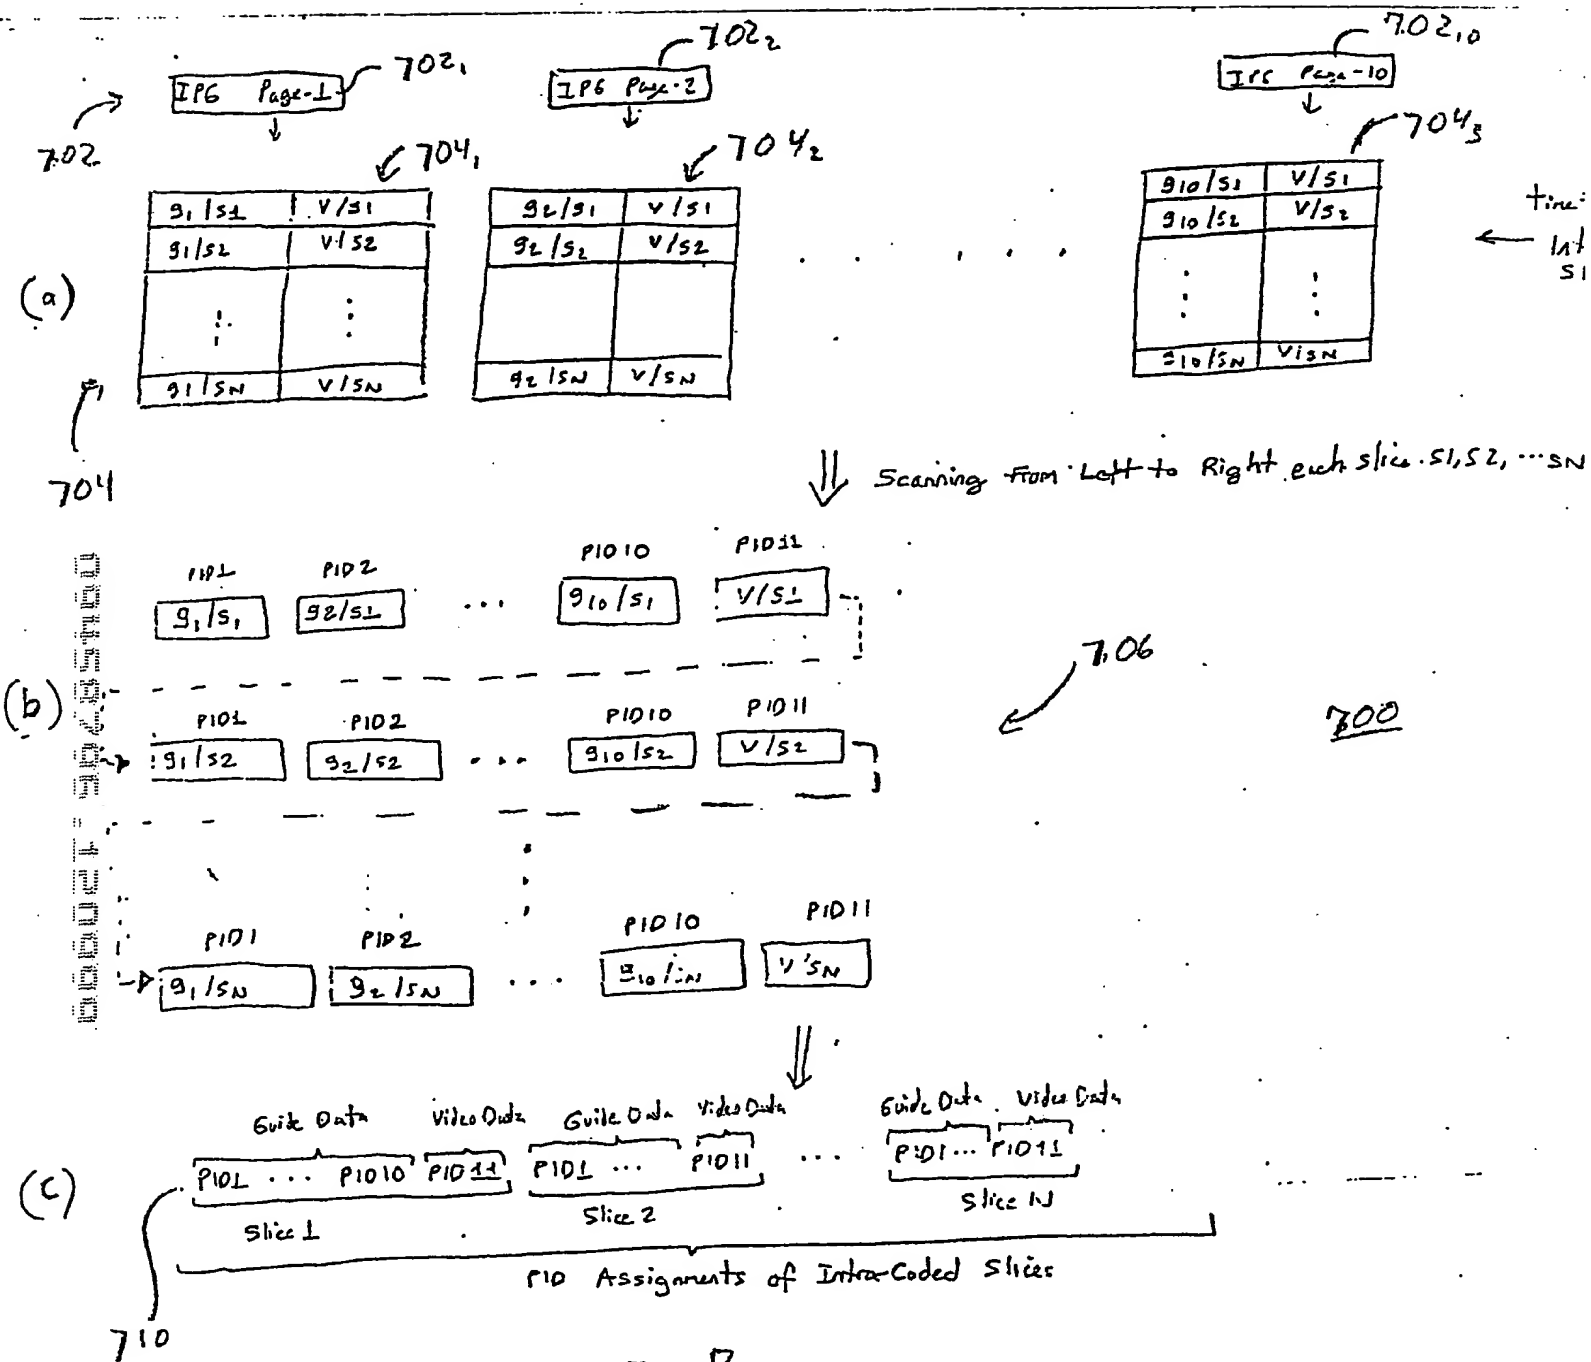 702₁ 702₂ 702₁₀
IPG Page-1 IPG Page-2 IPG Page-10
702
704₁ 704₂ 704₃
g1/s1 V/s1 g2/s1 V/s1 g10/s1 V/s1
g1/s2 V/s2 g2/s2 V/s2 g10/s2 V/s2
time=
(a)
g1/sN V/sN g2/sN V/sN g10/sN V/sN
704
Scanning From Left to Right each slice s1, s2, ... sN
PID1 PID2 PID10 PID11
g1/s1 g2/s1 ... g10/s1 V/s1
706
(b)
PID1 PID2 PID10 PID11
700
g1/s2 g2/s2 ... g10/s2 V/s2
PID1 PID2 PID10 PID11
g1/sN g2/sN ... g10/sN V/sN
Guide Data Video Data Guide Data Video Data Guide Data Video Data
(c)
PID1 ... PID10 PID11 PID1 ... PID11 ... PID1 ... PID11
Slice 1 Slice 2 Slice N
PID Assignments of Intra-Coded Slices
710